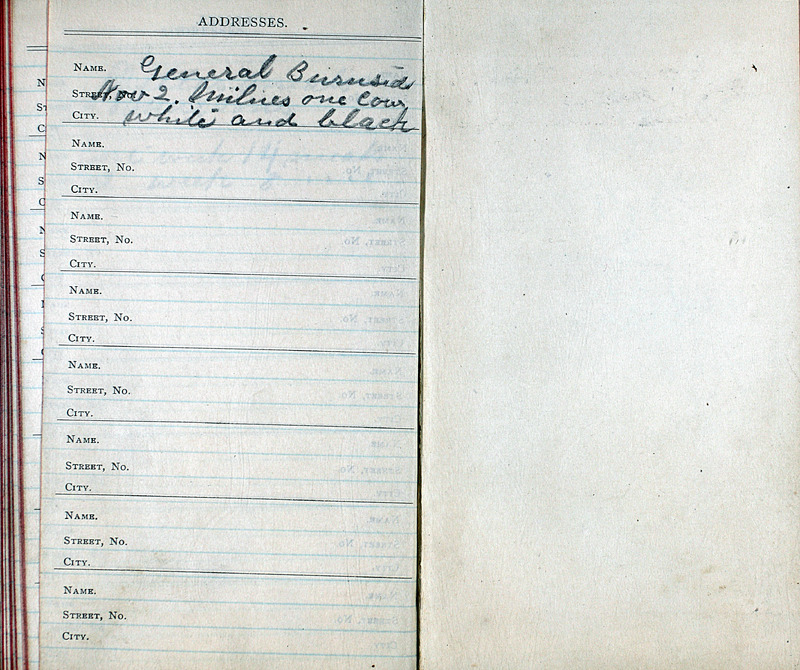 ADDRESSES.
NAME. General Burnside
STREET, No. Nov 2. Milnes one Cow
CITY. white and black
NAME.
STREET, No.
CITY.
NAME.
STREET, No.
CITY.
NAME.
STREET, No.
CITY.
NAME.
STREET, No.
CITY.
NAME.
STREET, No.
CITY.
NAME.
STREET, No.
CITY.
NAME.
STREET, No.
CITY.